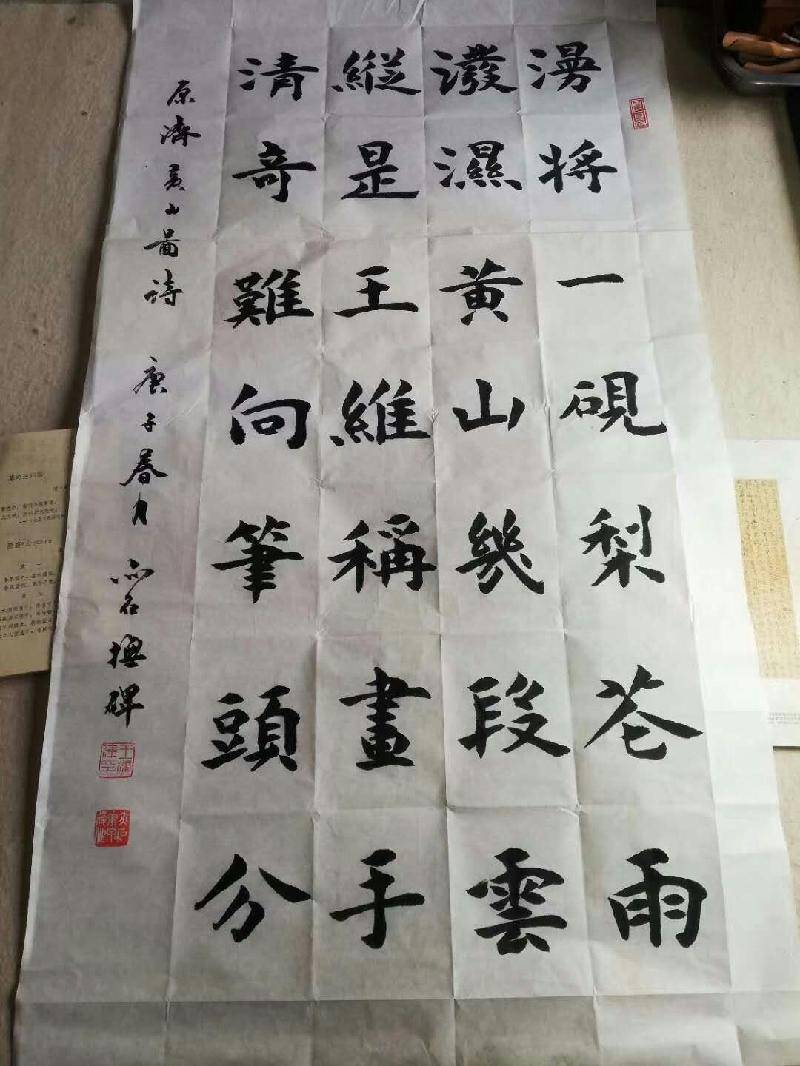 漫将一砚梨花雨
潑濕黄山幾段雲
縱是王維稱畫手
清奇難向筆頭分
原濟黄山圖詩 庚子春月